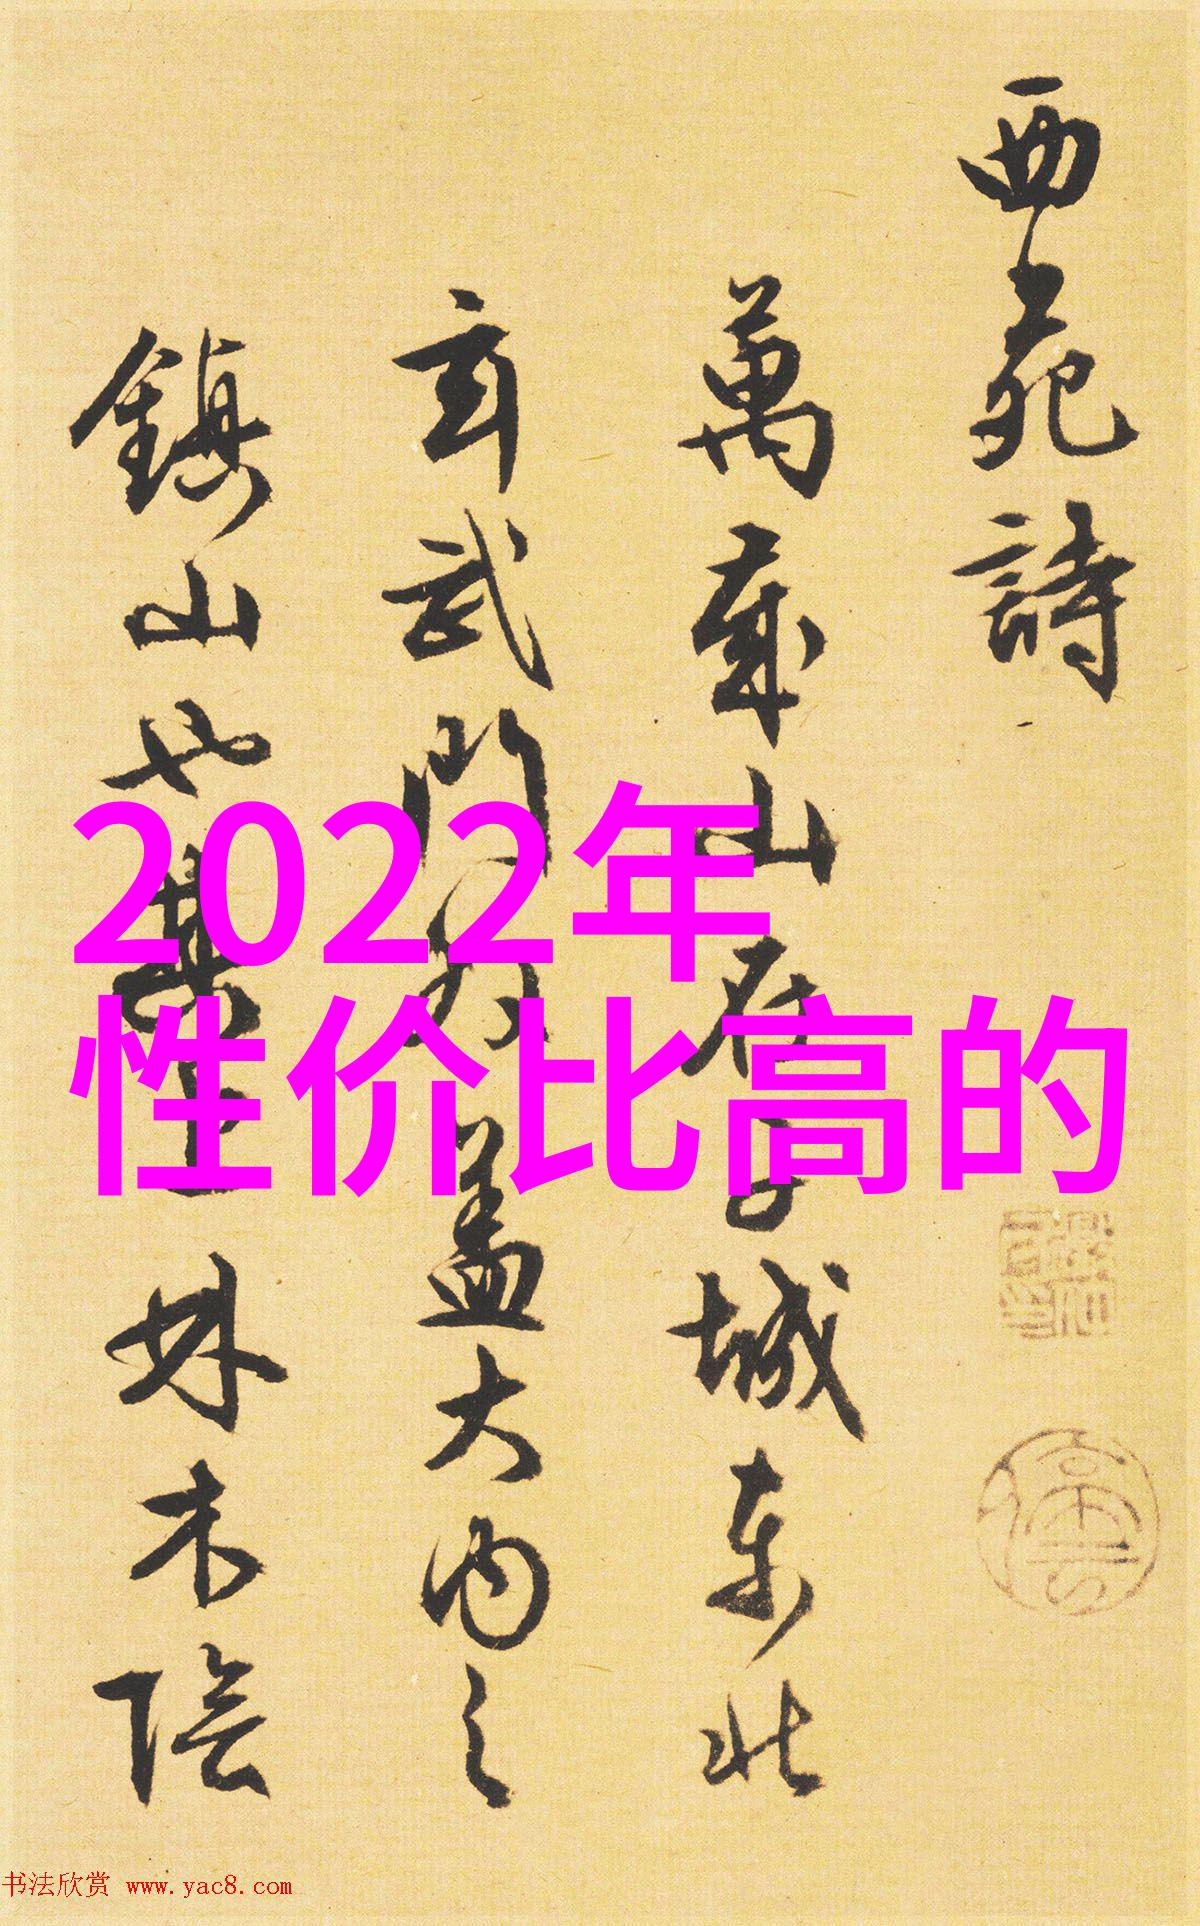 西苑詩
萬歲山在子城東北
玄武門外蓋大內之
鎮山也其上林木陰
2022年
性价比高的
书法欣赏 www.yac8.com